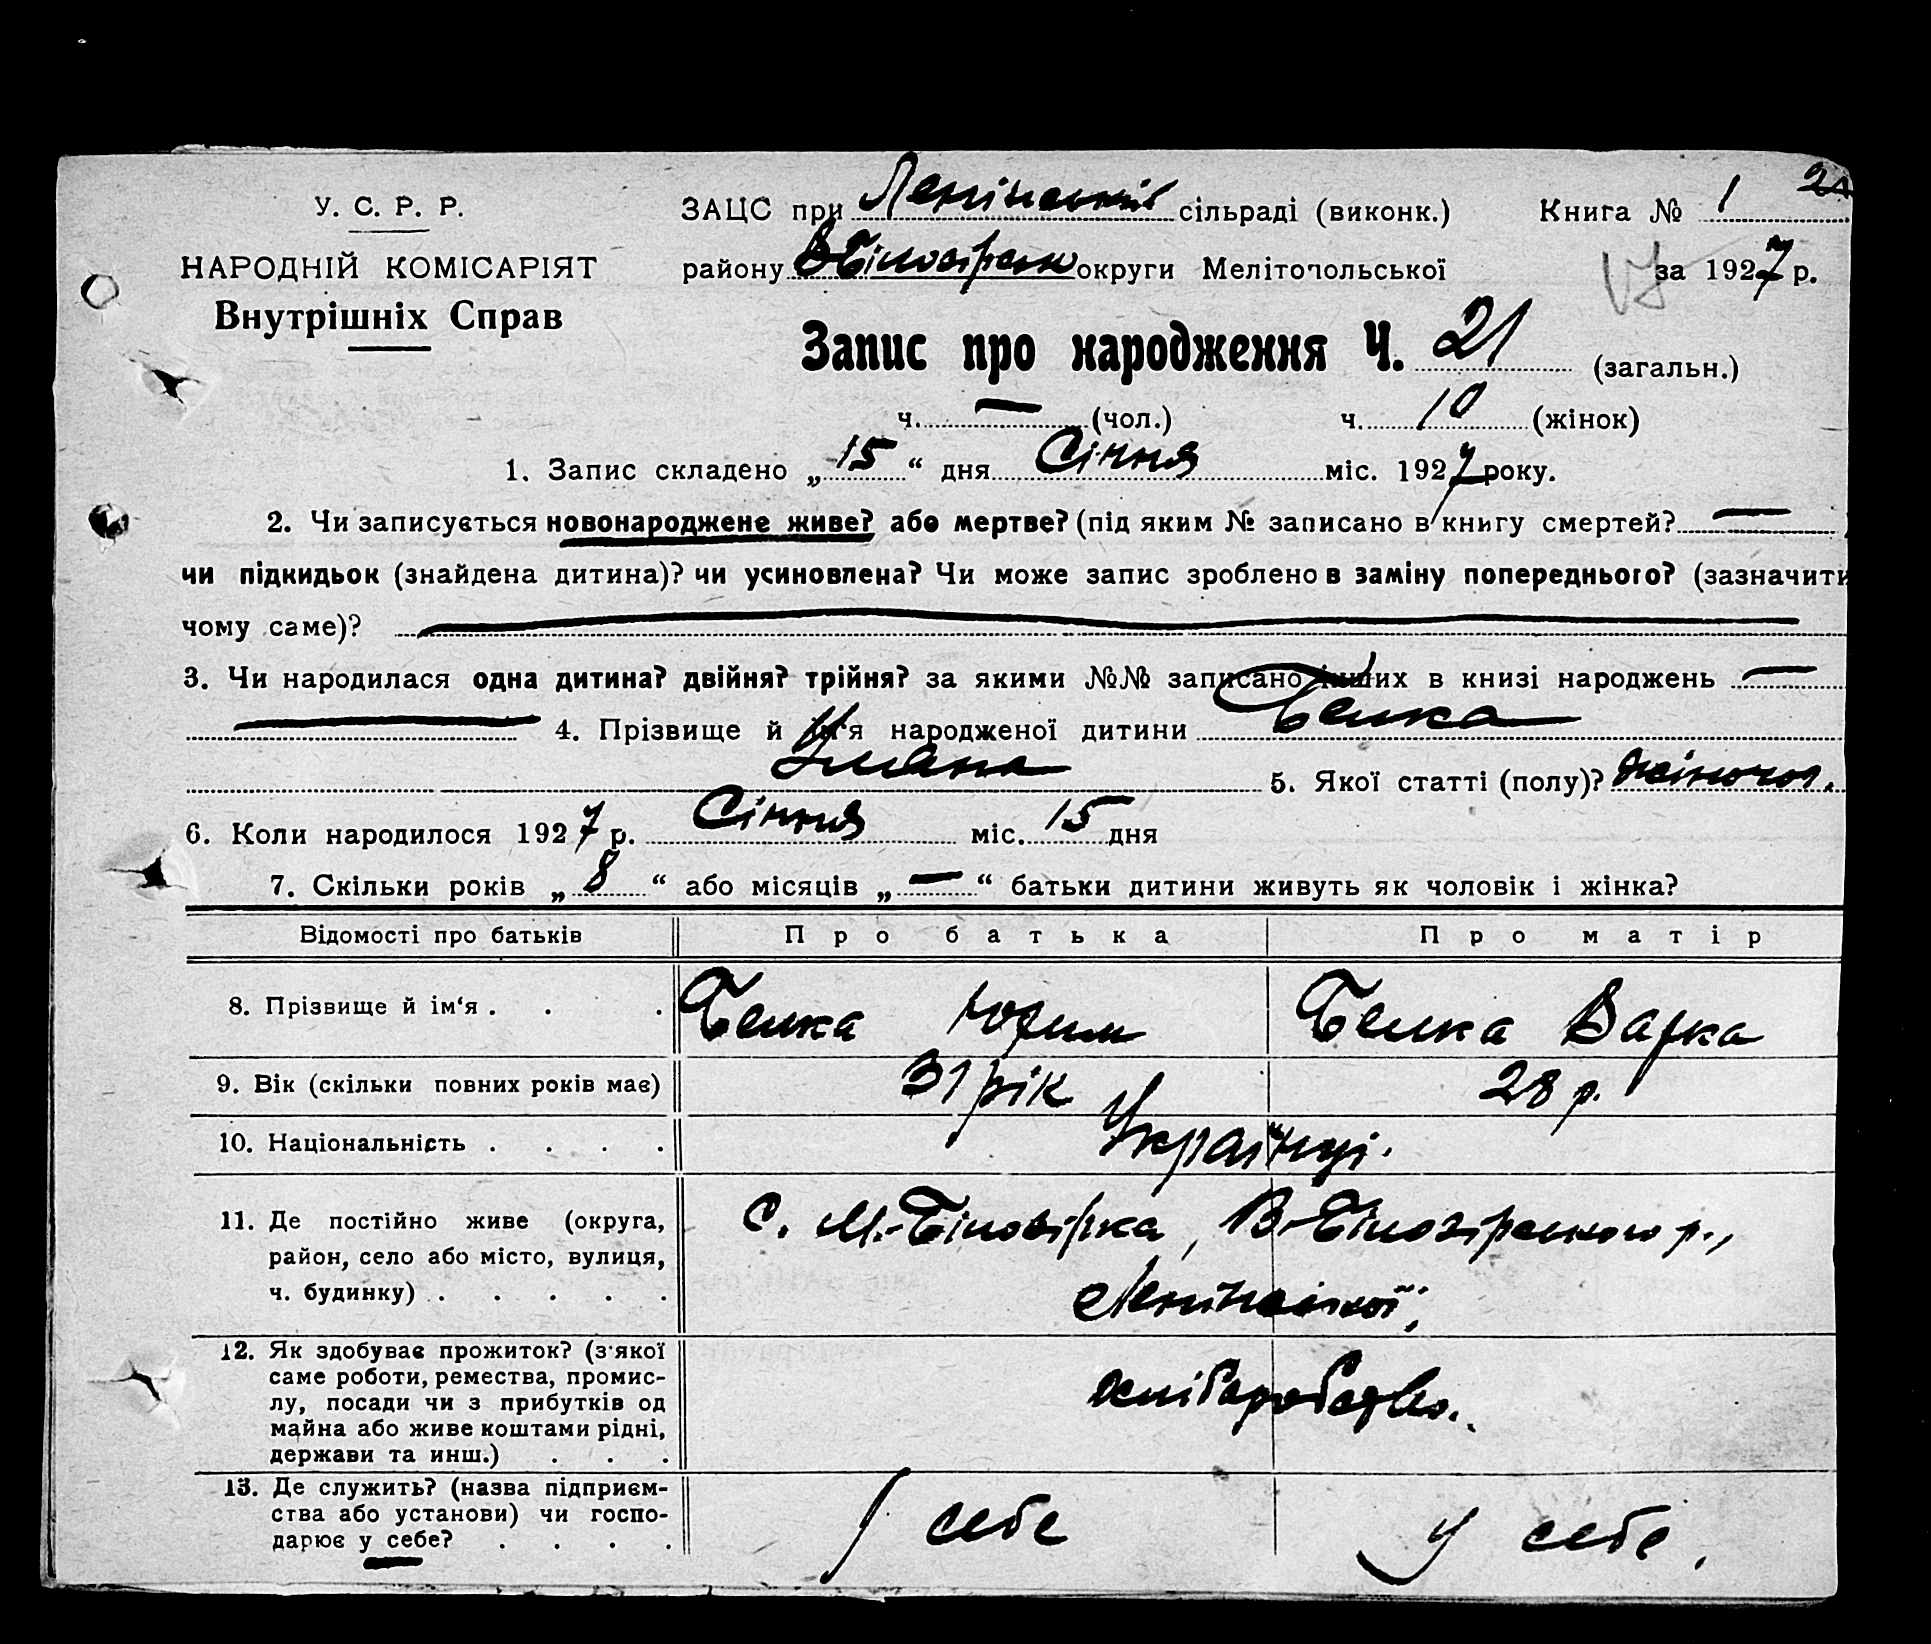 У. С. Р. Р.
НАРОДНІЙ КОМІСАРІЯТ
Внутрішніх Справ
ЗАЦС при Ленінській сільраді (виконк.) Книга № 1
району В Білозірськ округи Мелітопольської за 1927 р.
Запис про народження Ч. 21 (загальн.)
ч. — (чол.) ч. 10 (жінок)
1. Запис складено „15“ дня Січня міс. 1927 року.
2. Чи записується новонароджене живе? або мертве? (під яким № записано в книгу смертей? —
чи підкидьок (знайдена дитина)? чи усиновлена? Чи може запис зроблено в заміну попереднього? (зазначити
чому саме)? —
3. Чи народилася одна дитина? двійня? трійня? за якими №№ записано інших в книзі народжень —
— 4. Прізвище й ім'я народженої дитини Белка
Уляна 5. Якої статті (полу)? жіночої.
6. Коли народилося 1927 р. Січня міс. 15 дня
7. Скільки років „8“ або місяців „—“ батьки дитини живуть як чоловік і жінка?
Відомості про батьків Про батька Про матір
8. Прізвище й ім‘я . . . Белка Юхим Белка Варка
9. Вік (скільки повних років має) 31 рік 28 р.
10. Національність . . . . Українці.
11. Де постійно живе (округа, район, село або місто, вулиця, ч. будинку) . . . . .
С. М.-Білозірка, В-Білозірського р.,
Ленінської,
12. Як здобуває прожиток? (з'якої
саме роботи, ремества, промис-
лу, посади чи з прибутків од
майна або живе коштами рідні,
держави та инш.) . . .
13. Де служить? (назва підприєм-
ства або установи) чи госпо-
дарює у себе? . . . .
У себе У себе.